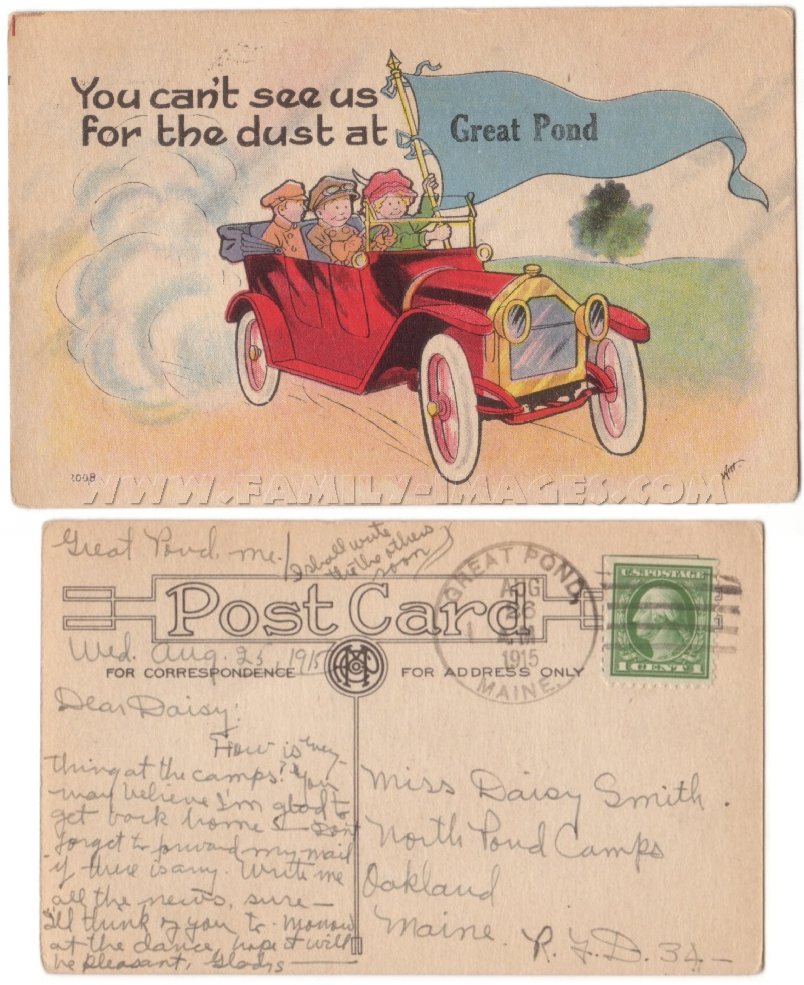 You can't see us
for the dust at
Great Pond
2008
WWW.FAMILY-IMAGES.COM
Great Pond, Me.
I shall write
to the others
soon
Post Card
Wed. Aug. 25, 1915
FOR CORRESPONDENCE
FOR ADDRESS ONLY
GREAT POND,
AUG
26
A.M.
1915
MAINE.
U.S. POSTAGE
1 CENT 1
Dear Daisy:
How is every-
thing at the camps? You
may believe I'm glad to
get back home — Don't
forget to forward my mail
if there is any. Write me
all the news, sure —
I'll think of you to-morrow
at the dance, hope it will
be pleasant, Gladys —
Miss Daisy Smith.
North Pond Camps
Oakland
Maine.
R.F.D. 34 —